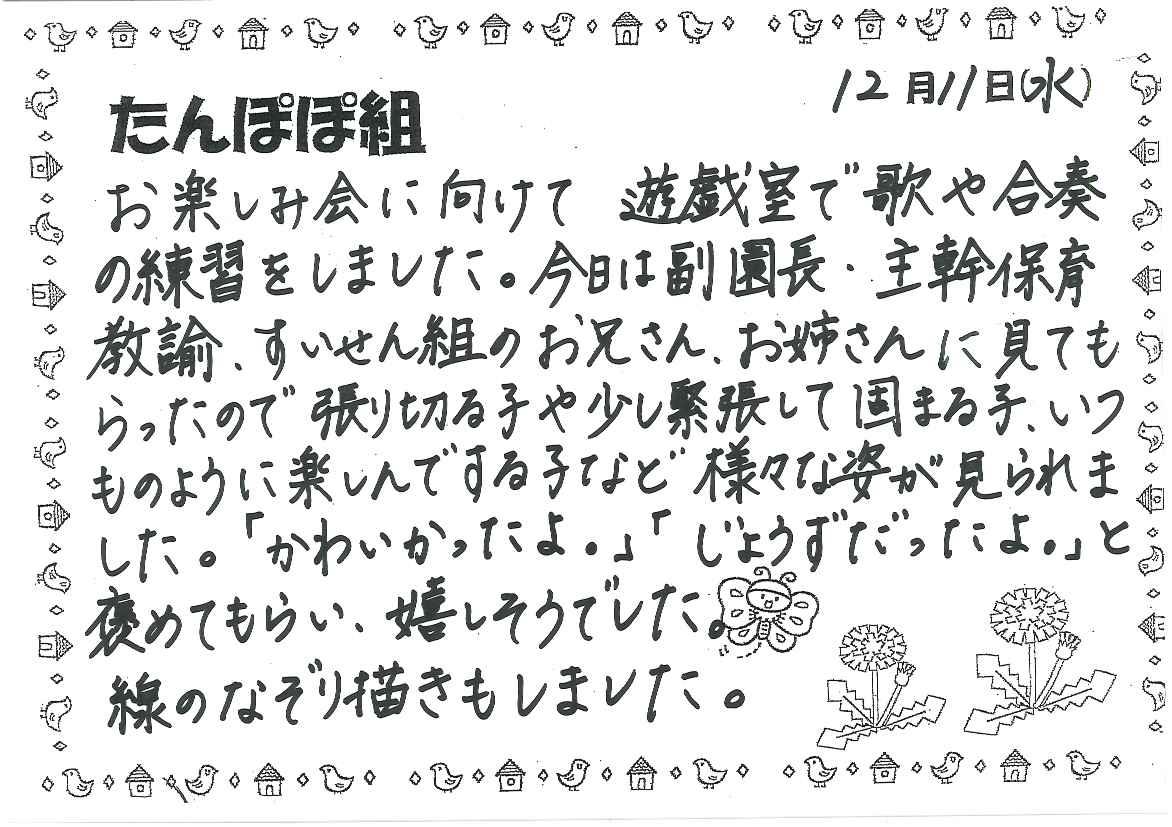 12月11日(水)
たんぽぽ組
お楽しみ会に向けて 遊戯室で歌や合奏
の練習をしました。今日は副園長・主幹保育
教諭、すいせん組のお兄さん、お姉さんに見ても
らったので張り切る子や少し緊張して固まる子、いつ
ものように楽しんでする子など様々な姿が見られま
した。「かわいかったよ。」「じょうずだったよ。」と
褒めてもらい、嬉しそうでした。
線のなぞり描きもしました。